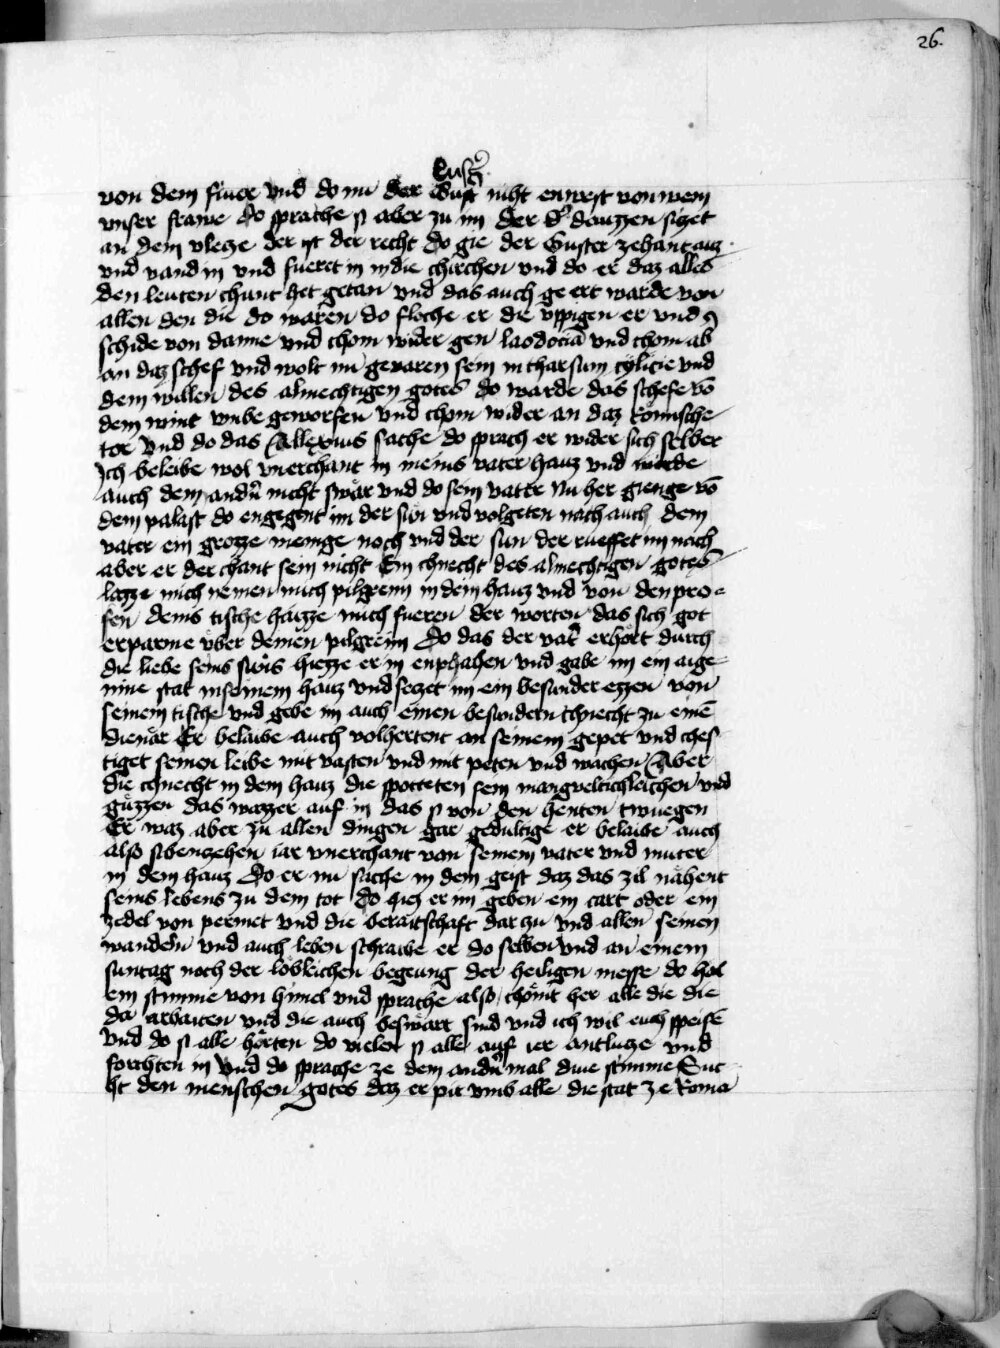 26.
Cust̾
von dem fiuer vnd do nu der Gust niht enwest von wem
vnser frawe Do sprache si aber zu im der do dauzzen sizet
an dem vletze der ist der recht do gie der Guster zehant auz
vnd vand in vnd fueret in in die chirchen vnd do er daz alles
den leuten chunt het getan vnd das auch ge ert warde von
allen den die do waren do floche er die vppigen er vnd
schide von danne vnd chom wider gen laodociā vnd chom ab
an daz schef vnd wolt nu gevaren sein in tharsum cylicie vnd
dem willen des almechtigen gotes do warde das schefe vō
dem wint vmbe geworfen vnd chom wider an daz Romische
tor vnd do das Allexius sache do sprach er wider sich selber
Ich beleibe wol vnerchant in meins vater hauz vnd wirde
auch dem andn̄ nicht swår vnd do sein vater nu her gienge vō
dem palast do engegent im der sun vnd volgeten nach auch dem
vater ein grozze menige noch vnd der sun der rueffet im nach
aber er der chant sein nicht Ein chnecht des almechtigen gotes
lazze mich nemen mich pilgreim in dein hauz vnd von den pro=
sen deins tische hazze mich fueren der worten das sich got
erparme vber deinen pilgreim Do das der vat̄ erhort durch
die liebe seins suns hiezze er in enphahen vnd gabe im ein aige=
nine stat in seinem hauz vnd seczet im ein besunder ezzen von
seinem tische vnd gebe im auch einen besundern chnecht zu einē
dienår Er belaibe auch volhertent an seinem gepet vnd ches
tiget seinen leibe mit vasten vnd mit peten vnd wachen Aber
die chnecht in dem hauz die spotteten sein mangveltichleichen vnd
guzzen das wazzer auf in das si von den henten twuegen
Er waz aber zu allen dingen gar gedultige er belaibe auch
also sibenzehen iar vnerchant von seinem vater vnd muter
in dem hauz Do er nu sache in dem geist daz das zil nåhent
seins lebens zu dem tot Do hiez er im geben ein cart oder ein
zedel von permet vnd die beraitschaft dar zu vnd allen seinen
wandeln vnd auch leben schraibe er do selben vnd an einem
suntag noch der lobleichen begeung der heiligen messe do hal
ein stimme von himel vnd sprache also chomt her alle die die
da arbaiten vnd die auch beswårt sind vnd ich wil euch speisē
vnd do si alle hörten do vielen si alle auf ier antlutze vnd
forchten in vnd do sprache ze dem andn̄ mal diue stimme Suc
ht den menschen gotes daz er pit vmb alle die stat ze Roma